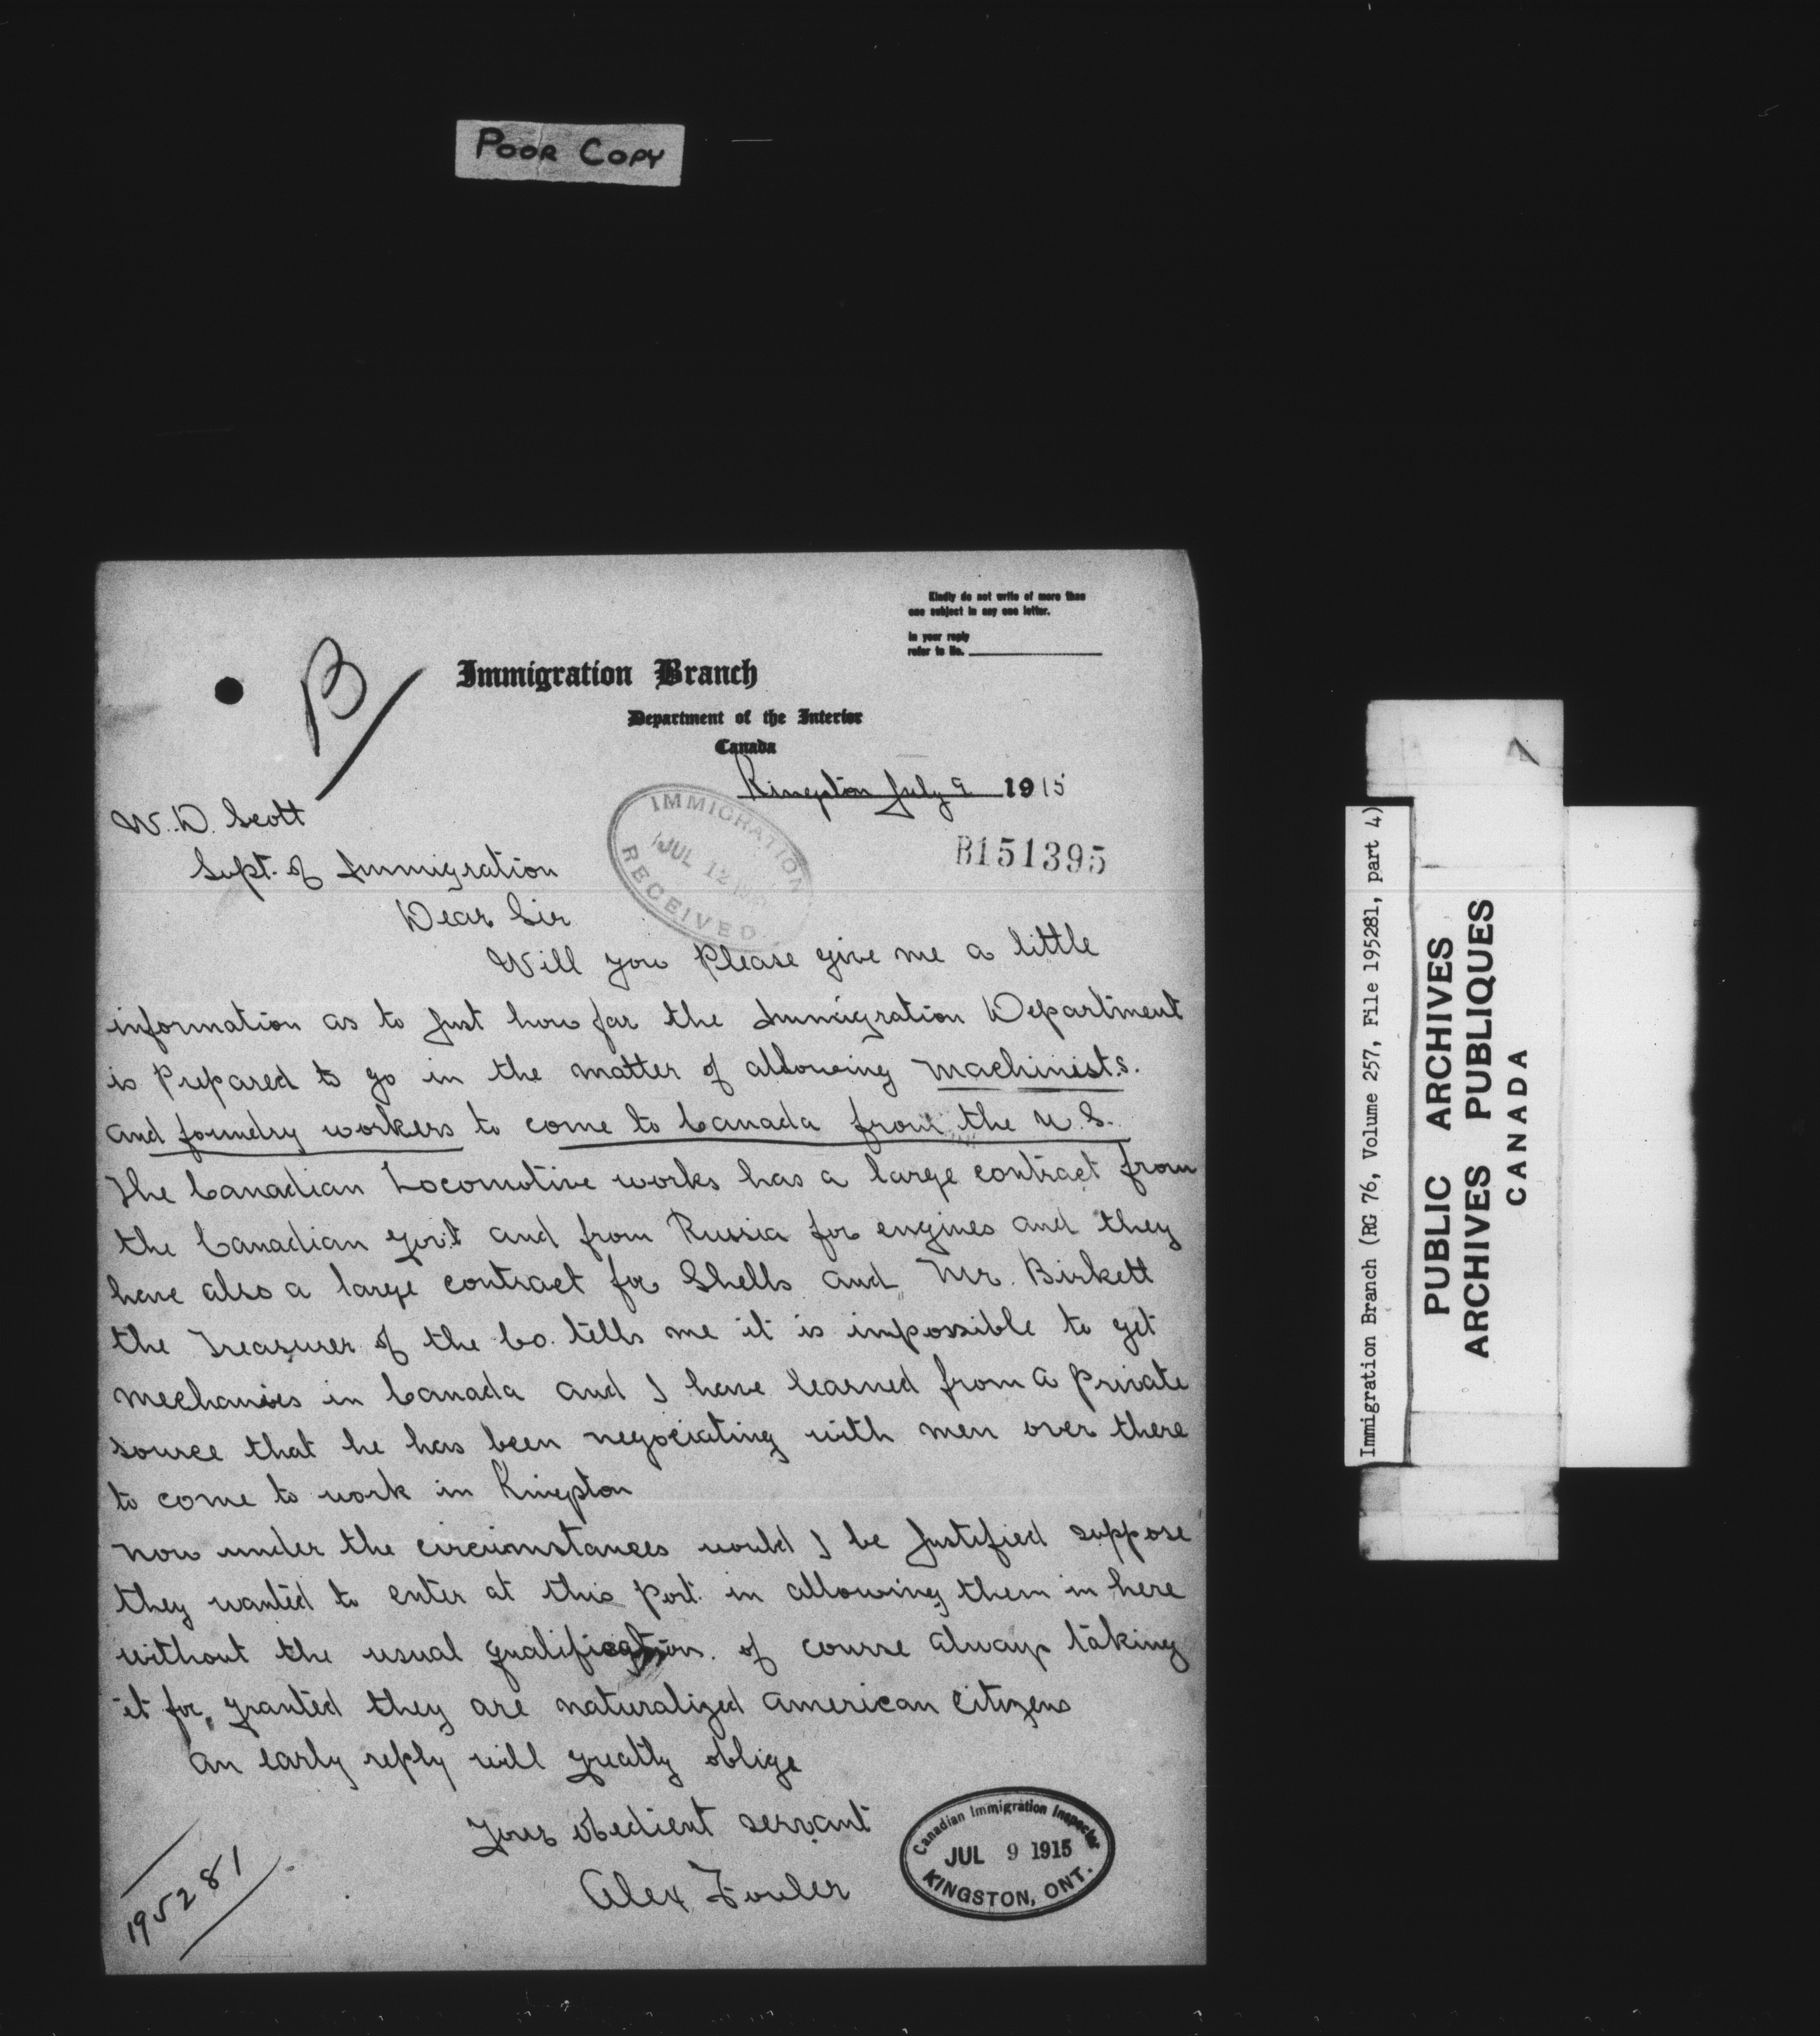 POOR COPY
Kindly do not write of more than
one subject in any one letter.
In your reply
refer to No.
B
Immigration Branch
Department of the Interior
Canada
Kingston July 9 1915
IMMIGRATION
JUL 12
RECEIVED
B151395
W. D. Scott
Supt. of Immigration
Dear Sir
Will you Please give me a little
information as to just how far the Immigration Department
is Prepared to go in the matter of allowing machinists.
and foundry workers to come to Canada from the U.S.
The Canadian Locomotive works has a large contract from
the Canadian Gov't and from Russia for engines and they
have also a large contract for Shells and Mr. Birkett
the Treasurer of the Co. tells me it is impossible to get
mechanics in Canada and I have learned from a Private
source that he has been negociating with men over there
to come to work in Kingston
now under the circumstances would I be justified suppose
they wanted to enter at this Port. in allowing them in here
without the usual qualification. of course always taking
it for granted they are naturalized american citizens
an early reply will greatly oblige
Your obedient servant
Alex Fowler
Canadian Immigration Inspector
JUL 9 1915
KINGSTON, ONT.
195281
Immigration Branch (RG 76, Volume 257, File 195281, part 4)
PUBLIC ARCHIVES
ARCHIVES PUBLIQUES
CANADA